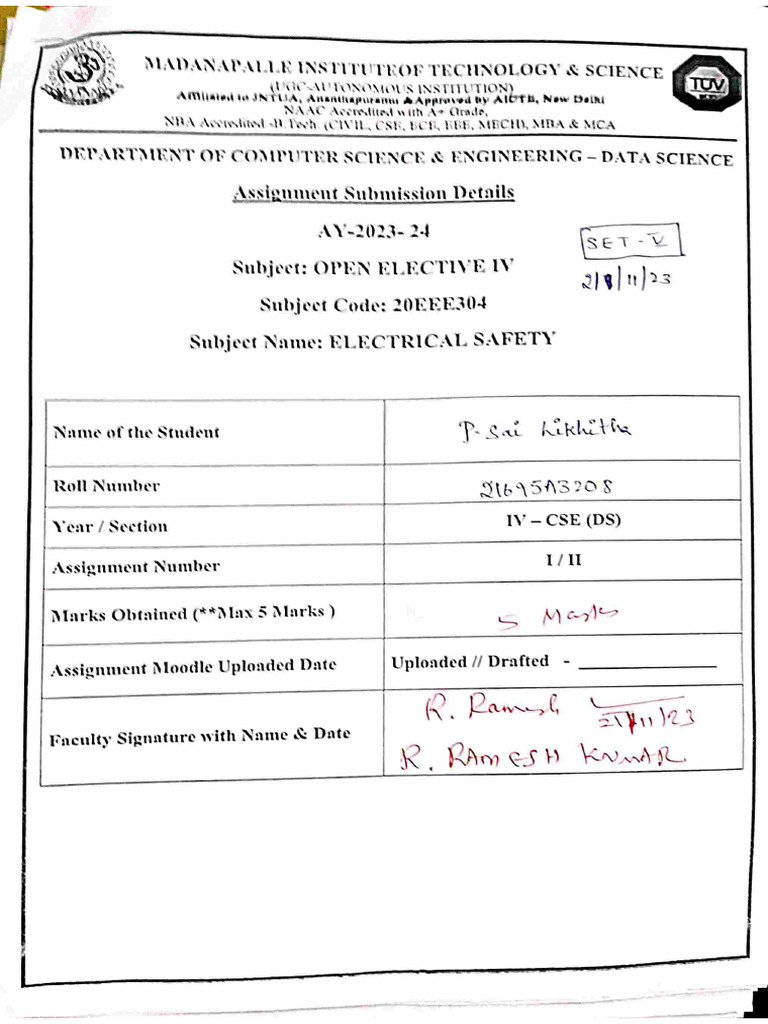 MADANAPALLE INSTITUTEOF TECHNOLOGY & SCIENCE
(UGC-AUTONOMOUS INSTITUTION)
Affiliated to JNTUA, Ananthapuramu &Approved by AICTE, New Delhi
NAAC Accredited with A+ Grade,
NBA Accredited -B.Tech. (CIVIL, CSE, ECE, EEE, MECH), MBA & MCA
TÜV
DEPARTMENT OF COMPUTER SCIENCE & ENGINEERING – DATA SCIENCE
Assignment Submission Details
AY-2023- 24
SET - V
Subject: OPEN ELECTIVE IV
Subject Code: 20EEE304
Subject Name: ELECTRICAL SAFETY
Name of the Student P. Sai Likhitha
Roll Number 21695A3208
Year / Section IV – CSE (DS)
Assignment Number I / II
Marks Obtained (**Max 5 Marks ) 5 Marks
Assignment Moodle Uploaded Date Uploaded // Drafted - ____________
R. Ramesh
Faculty Signature with Name & Date
R. RAMESH KUMAR